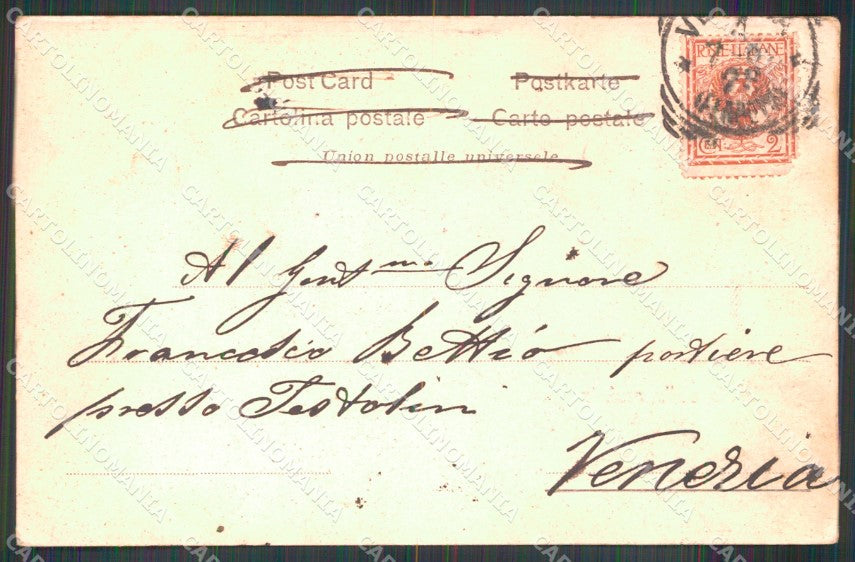 Post Card
Postkarte
Cartolina postale
Carte postale
Union postalle universele
POSTE ITALIANE
CEN 2
Al Gent.ma Signore
Francesco Bettio portiere
presso Testolin
Venezia
CARTOLINOMANIA